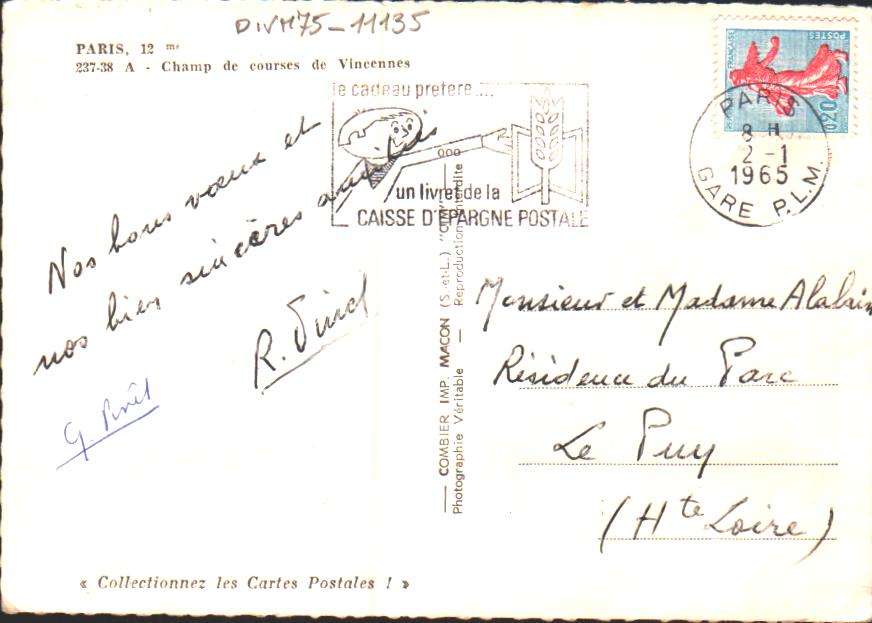 DIVM75-11135
PARIS, 12 me
237-38 A - Champ de courses de Vincennes
le cadeau préféré....
un livret de la
CAISSE D'EPARGNE POSTALE
POSTES
0,20
PARIS
8 H
2 - 1
1965
GARE P.L.M.
Nos bons vœux et
nos bien sincères amitiés
R.
G.
— COMBIER IMP. MACON (S.-et-L.) "CIM" —
Photographie Véritable — Reproduction interdite
Monsieur et Madame
Résidence du Parc
Le Puy
(Hte Loire)
« Collectionnez les Cartes Postales ! »